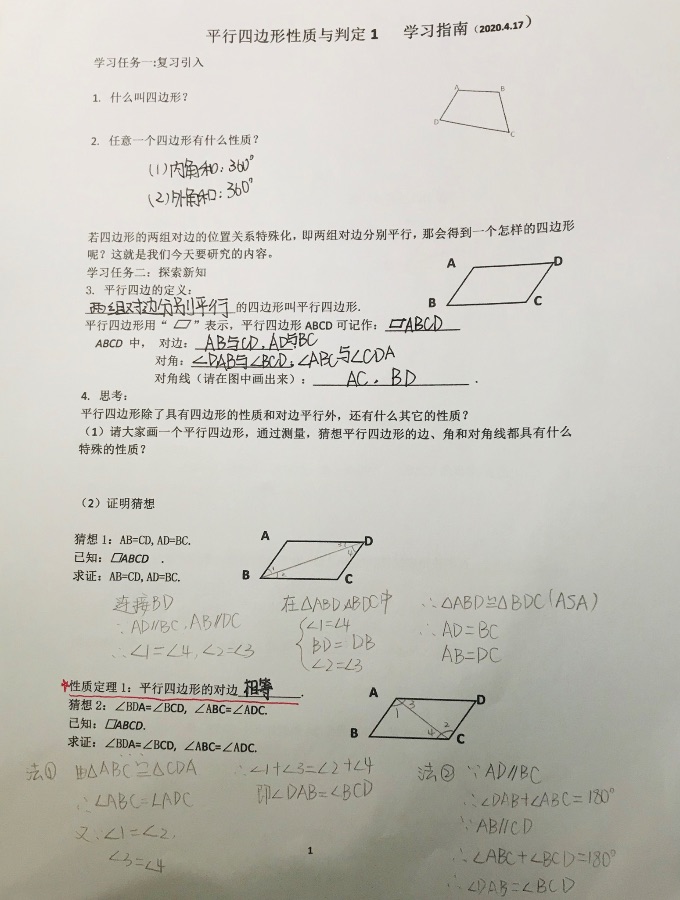 平行四边形性质与判定1 学习指南(2020.4.17)
学习任务一:复习引入
1. 什么叫四边形?
A B
D C
2. 任意一个四边形有什么性质?
(1)内角和:360°
(2)外角和:360°
若四边形的两组对边的位置关系特殊化,即两组对边分别平行,那会得到一个怎样的四边形
呢?这就是我们今天要研究的内容。
A D
学习任务二:探索新知
3. 平行四边的定义:
B C
两组对边分别平行的四边形叫平行四边形.
平行四边形用“▱”表示,平行四边形 ABCD 可记作:▱ABCD
ABCD 中, 对边:AB与CD,AD与BC
对角:∠DAB与∠BCD;∠ABC与∠CDA
对角线(请在图中画出来):AC,BD.
4. 思考:
平行四边形除了具有四边形的性质和对边平行外,还有什么其它的性质?
(1)请大家画一个平行四边形,通过测量,猜想平行四边形的边、角和对角线都具有什么
特殊的性质?
(2)证明猜想
猜想 1:AB=CD, AD=BC.
A D
已知:▱ABCD .
求证:AB=CD, AD=BC.
B C
连接BD
∵AD∥BC,AB∥DC
∴∠1=∠4,∠2=∠3
在△ABD △BDC中
∠1=∠4
BD=DB
∠2=∠3
∴△ABD≌△BDC(ASA)
∴AD=BC
AB=DC
性质定理 1:平行四边形的对边相等.
猜想 2:∠BDA=∠BCD, ∠ABC=∠ADC.
已知:▱ABCD.
求证:∠BDA=∠BCD, ∠ABC=∠ADC.
A D
1 3 2 4
B C
法① 由△ABC≌△CDA
∴∠ABC=∠ADC
又∵∠1=∠2,
∠3=∠4
∴∠1+∠3=∠2+∠4
即∠DAB=∠BCD
法② ∵AD∥BC
∴∠DAB+∠ABC=180°
∵AB∥CD
∴∠ABC+∠BCD=180°
∴∠DAB=∠BCD
1